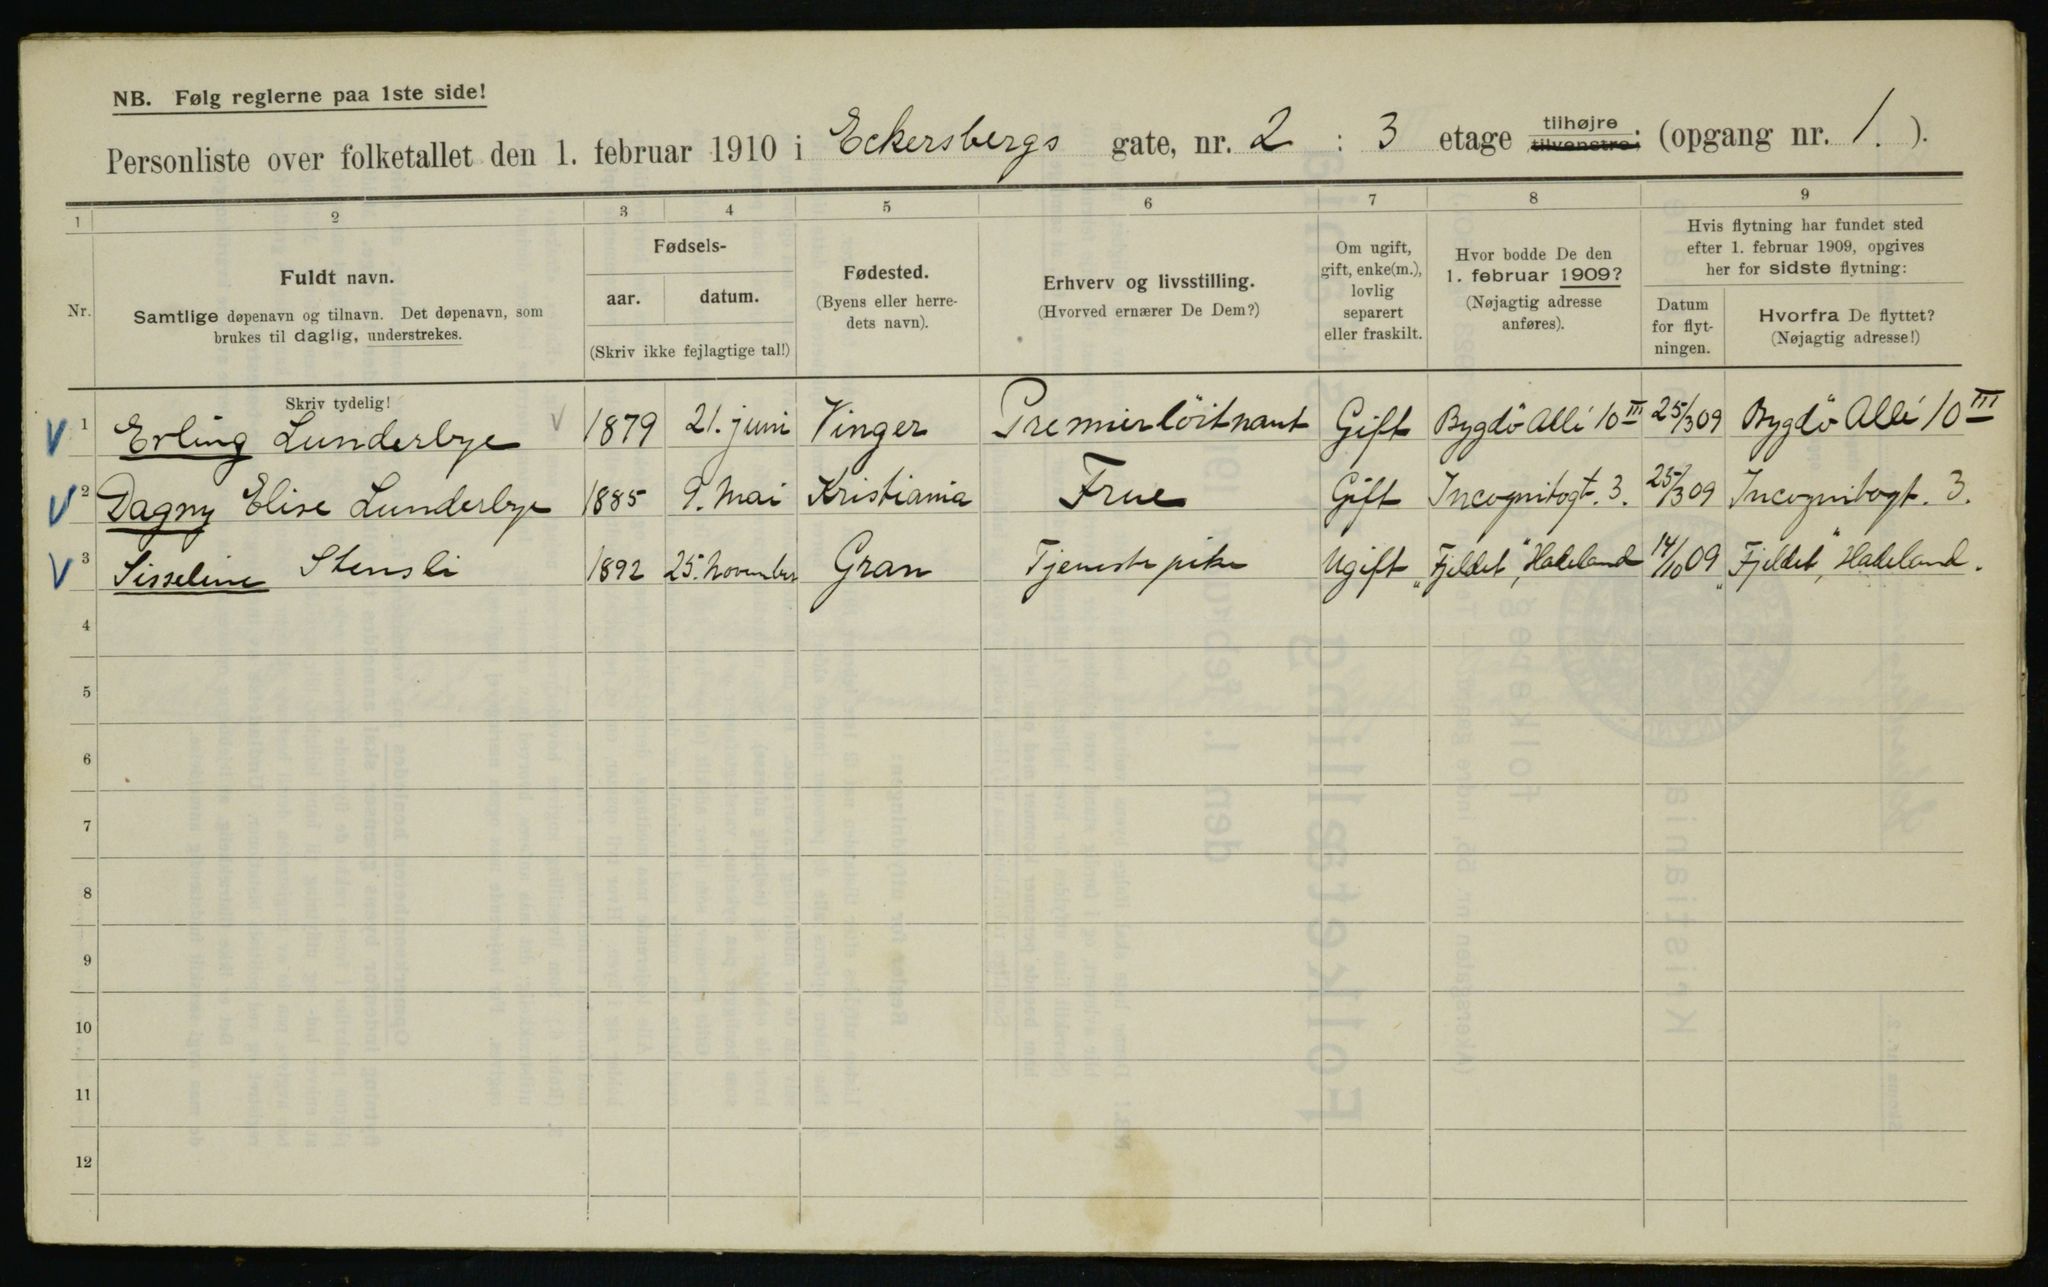 NB. Følg reglerne paa 1ste side!
Personliste over folketallet den 1. februar 1910 i Eckersbergs gate, nr. 2 : 3 etage tilhøjre tilvenstre: (opgang nr. 1. ).
1 2 3 4 5 6 7 8 9
Nr.
Fuldt navn.
Samtlige døpenavn og tilnavn. Det døpenavn, som
brukes til daglig, understrekes.
Skriv tydelig!
Fødsels-
aar. datum.
(Skriv ikke fejlagtige tal!)
Fødested.
(Byens eller herre-
dets navn).
Erhverv og livsstilling.
(Hvorved ernærer De Dem?)
Om ugift,
gift, enke(m.),
lovlig
separert
eller fraskilt.
Hvor bodde De den
1. februar 1909?
(Nøjagtig adresse
anføres).
Hvis flytning har fundet sted
efter 1. februar 1909, opgives
her for sidste flytning:
Datum
for flyt-
ningen.
Hvorfra De flyttet?
(Nøjagtig adresse!)
1 Erling Lunderbye 1879 21. juni Vinger Premierlöitnant Gift Bygdö Allé 10 III 25/3 09 Bygdö Allé 10 III
2 Dagny Elise Lunderbye 1885 9. Mai Kristiania Frue Gift Incognitogt. 3. 25/3 09 Incognitogt. 3.
3 Sisseline Stensli 1892 25. November Gran Tjenestepike Ugift "Fjeldet", Hadeland 14/10 09 "Fjeldet", Hadeland.
4
5
6
7
8
9
10
11
12